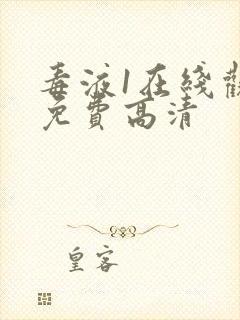 毒液1在线觀
免費高清
皇客